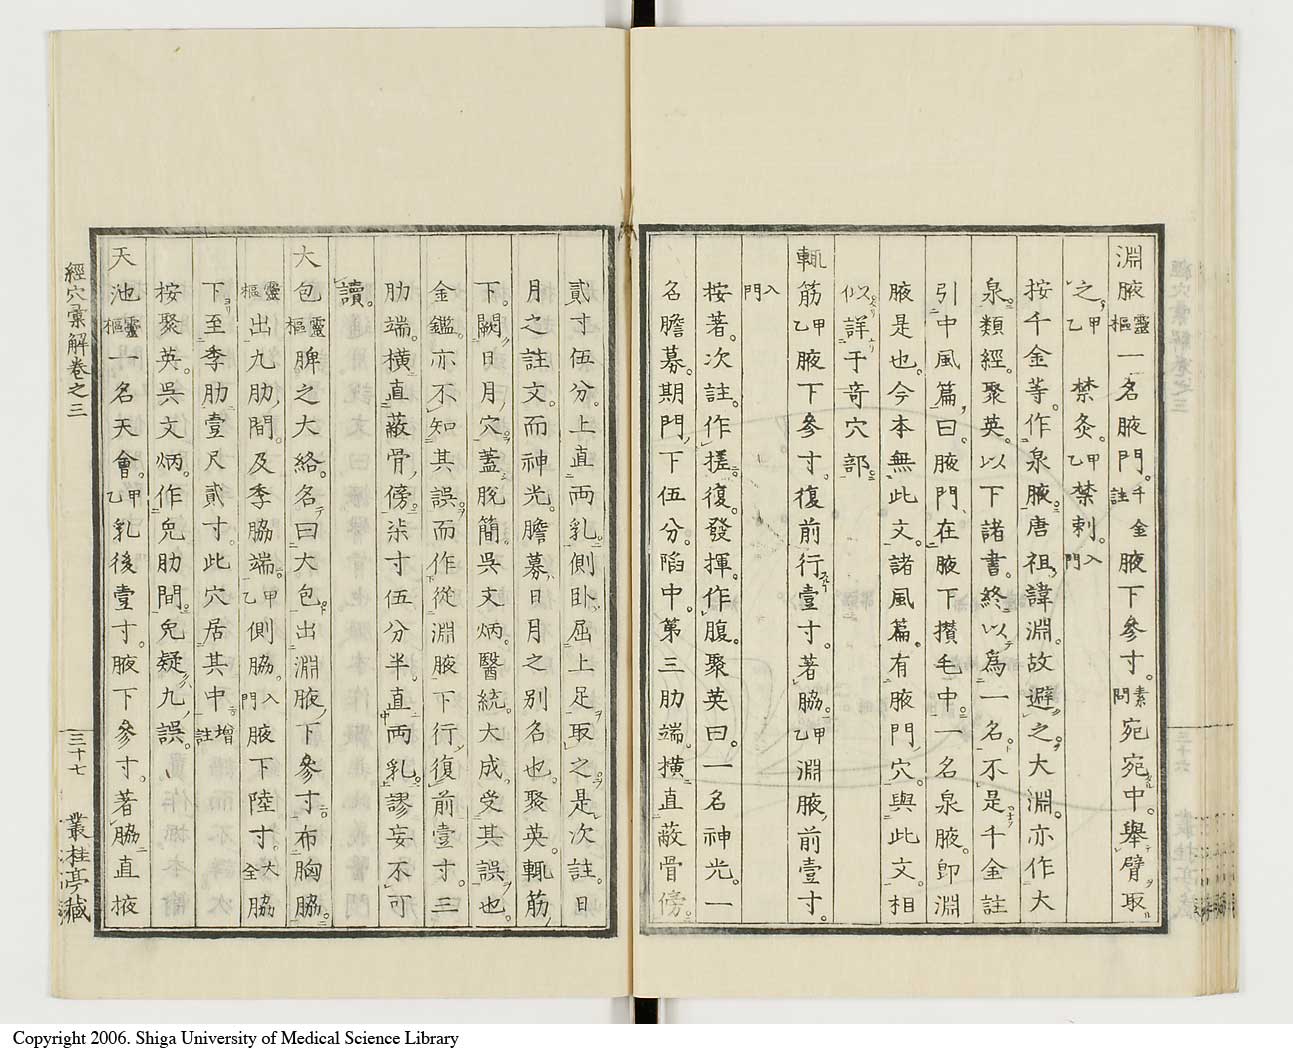 淵腋靈樞一名腋門。千金註腋下參寸。素問宛宛中。舉臂取
之。甲乙禁灸。甲乙禁刺。入門
按千金等。作泉腋。唐祖諱淵。故避之。大淵。亦作大
泉。類經。聚英。以下諸書。終以為一名。不是。千金註
引中風篇曰。腋門。在腋下攢毛中。一名泉腋。即淵
腋是也。今本無此文。諸風篇。有腋門穴。與此文。相
似。詳于奇穴部。
輒筋甲乙腋下參寸。復前行壹寸。著脇。甲乙淵腋前壹寸。
入門
按著。次註。作搓。復。發揮。作腹。聚英曰。一名神光。一
名膽募。期門下伍分。陷中。第三肋端。橫直蔽骨傍。
貳寸伍分。上直兩乳。側臥。屈上足取之。是次註。日
月之註文。而神光。膽募。日月之別名也。聚英。輒筋
下。闕日月穴。蓋脫簡。吳文炳。醫統。大成。受其誤也。
金鑑。亦不知其誤。而作從淵腋下行。復前壹寸。三
肋端。橫直蔽骨傍。柒寸伍分半。直兩乳。謬妄不可
讀。
大包靈樞脾之大絡。名曰大包。出淵腋下參寸。布胸脇。
靈樞出九肋間。及季脇端。甲乙側脇。入門腋下陸寸。大全脇
下至季肋壹尺貳寸。此穴居其中。增註
按聚英。吳文炳。作免肋間。免疑九誤。
天池靈樞一名天會。甲乙乳後壹寸。腋下參寸。著脇直掖
經穴彙解卷之三
三十七
叢桂亭藏
Copyright 2006. Shiga University of Medical Science Library